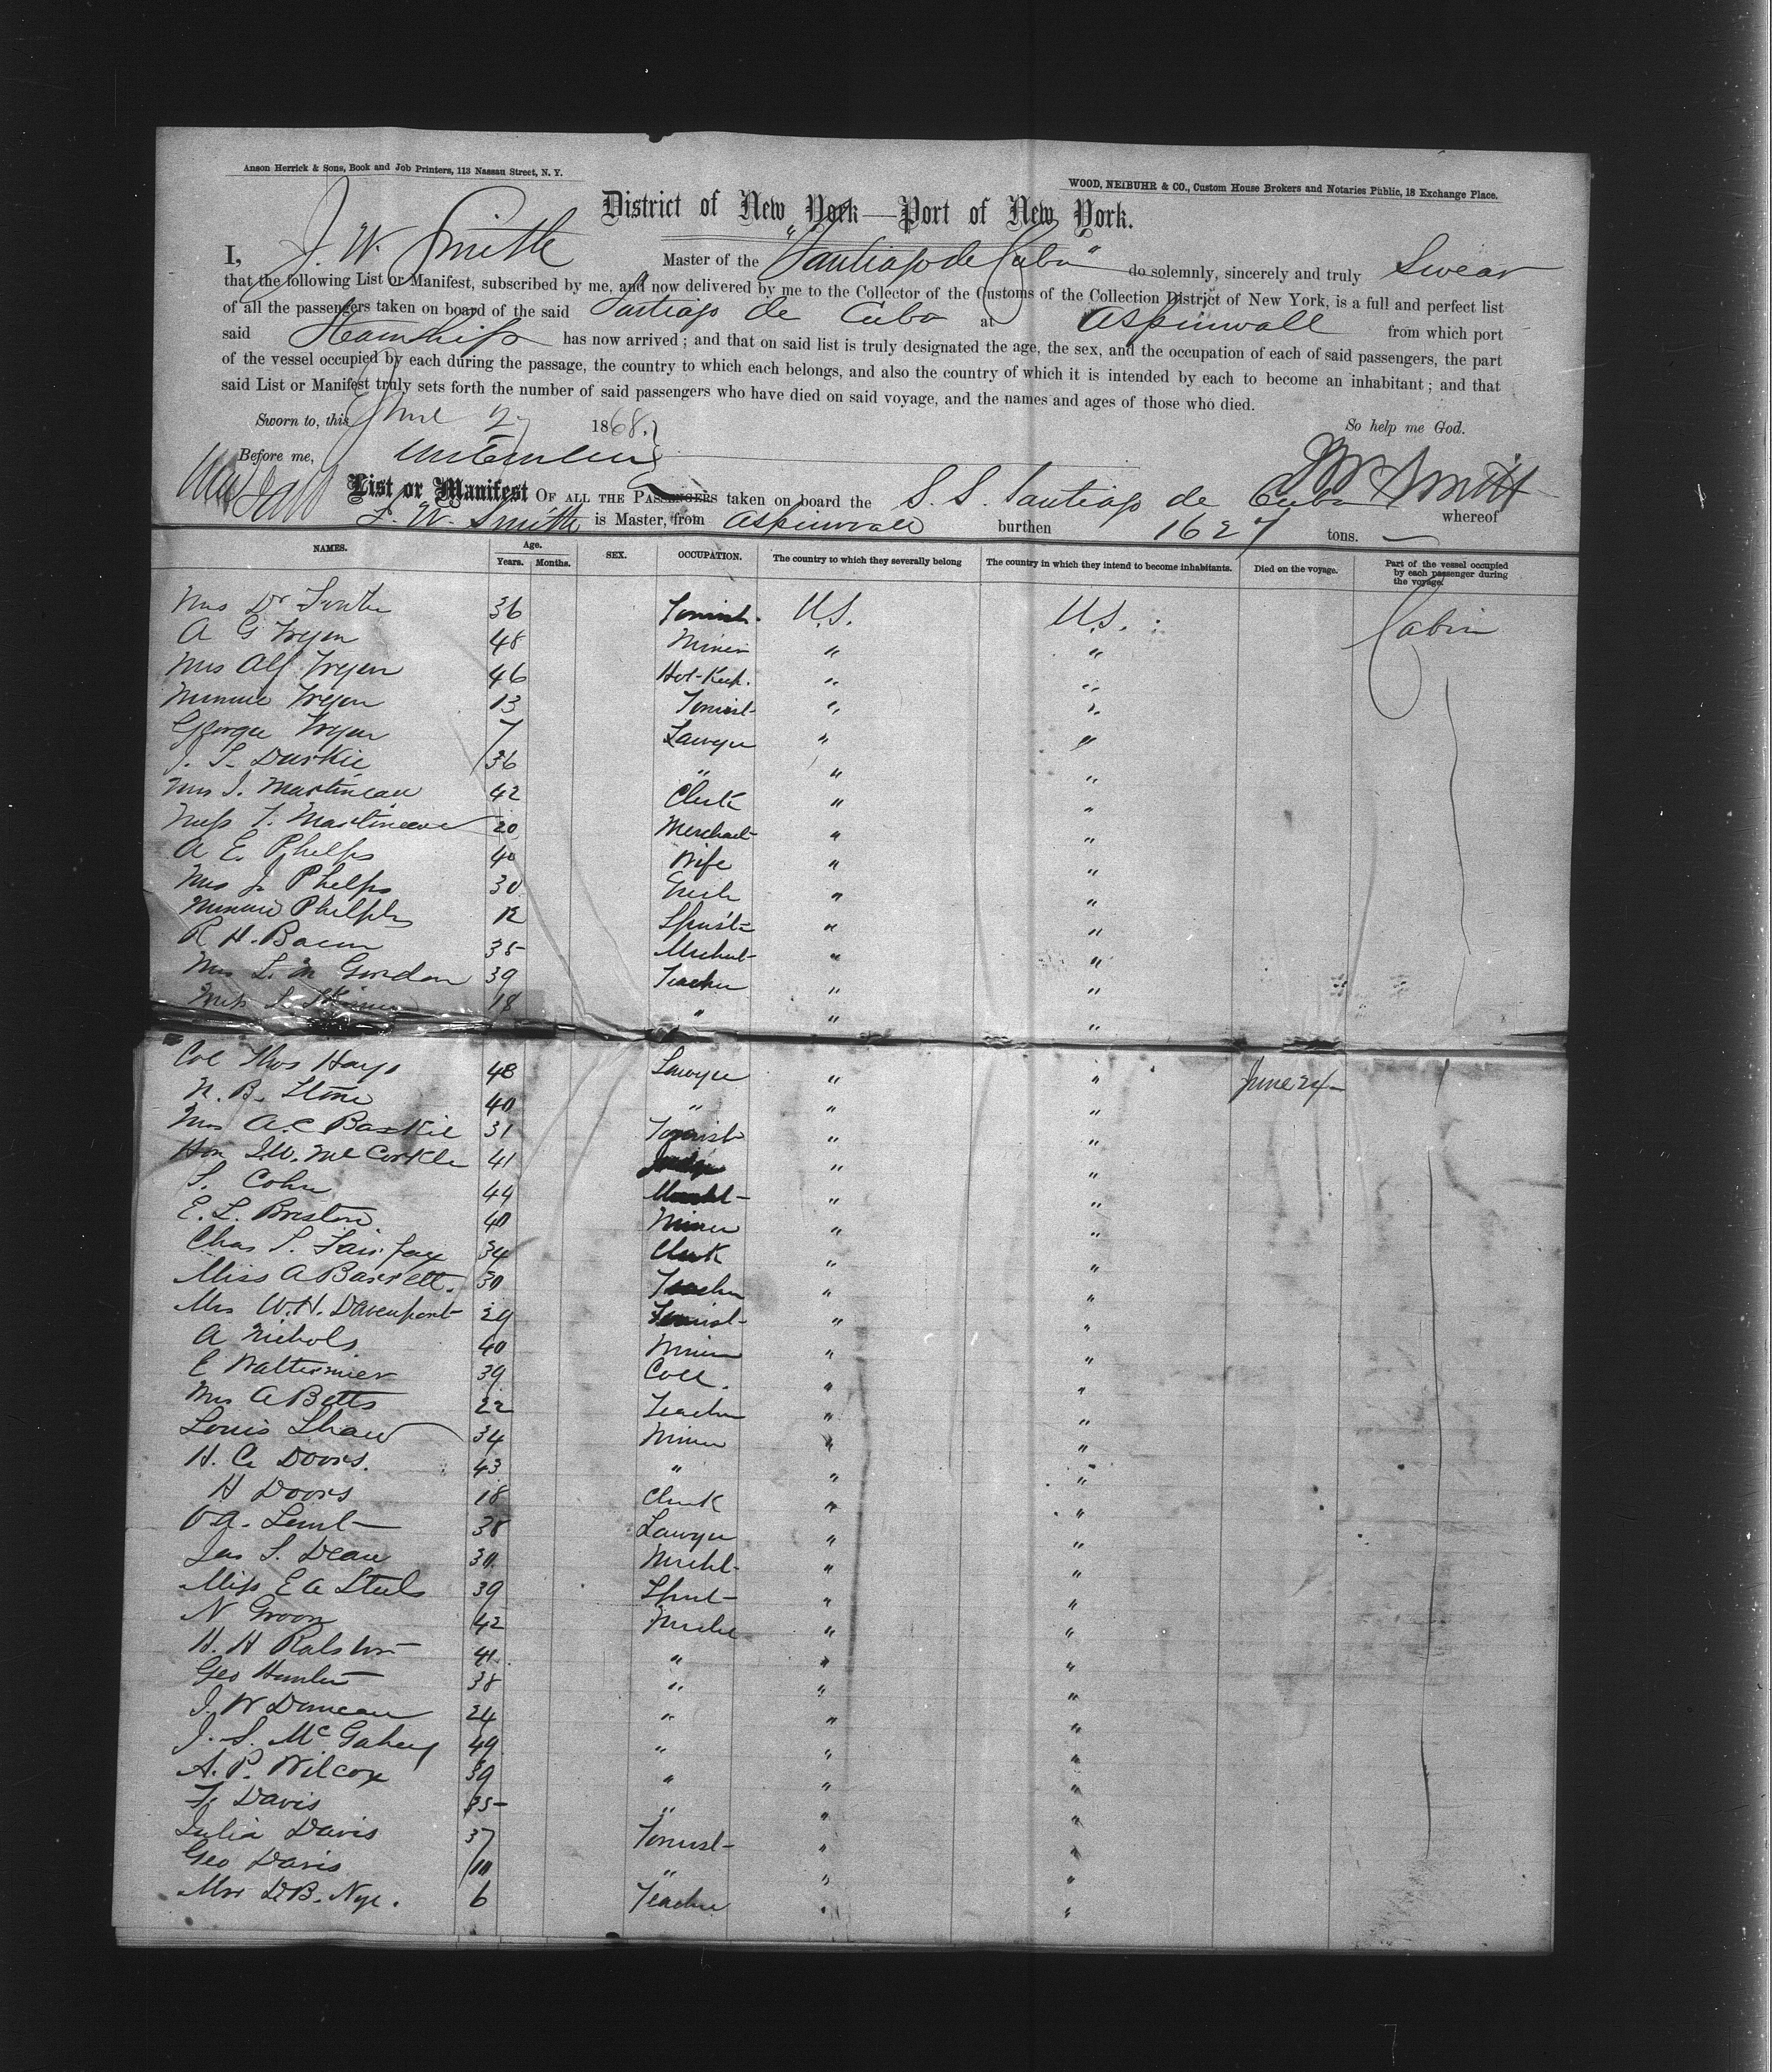 Anson Herrick & Sons, Book and Job Printers, 113 Nassau Street, N. Y.
WOOD, NEIBUHR & CO., Custom House Brokers and Notaries Public, 18 Exchange Place.
District of New York—Port of New York.
I, J. W. Smith Master of the "Santiago de Cuba" do solemnly, sincerely and truly Swear
that the following List or Manifest, subscribed by me, and now delivered by me to the Collector of the Customs of the Collection District of New York, is a full and perfect list
of all the passengers taken on board of the said Santiago de Cuba at Aspinwall from which port
said Steamship has now arrived; and that on said list is truly designated the age, the sex, and the occupation of each of said passengers, the part
of the vessel occupied by each during the passage, the country to which each belongs, and also the country of which it is intended by each to become an inhabitant; and that
said List or Manifest truly sets forth the number of said passengers who have died on said voyage, and the names and ages of those who died.
Sworn to, this June 27 1868. So help me God.
Before me, J W Smith
List or Manifest OF ALL THE PASSENGERS taken on board the S. S. Santiago de Cuba whereof
J. W. Smith is Master, from Aspinwall burthen 1627 tons.
NAMES. Age. Years. Months. SEX. OCCUPATION. The country to which they severally belong The country in which they intend to become inhabitants. Died on the voyage. Part of the vessel occupied by each passenger during the voyage.
Mrs Dr 36 Tourist. U.S. U.S. Cabin
A G 48 Miner " "
Mrs Alf 46 Hot-Keep. " "
Minnie 13 Tourist " "
George 7 Lawyer " "
J. S. Durkie 36 " " "
Mrs J. Martineau 42 Clerk " "
Miss T. Martineau 20 Merchant " "
A E. Phelps 40 Wife " "
Mrs J. Phelps 30 " "
Minnie Phelps 12 Spinst " "
R H. Bacon 35 Merchnt " "
Mrs L. M Gordon 39 Teacher " "
Miss L. Skinner 18 " " "
Col Thos Hays 48 Lawyer " " June 24
N. B. Stone 40 " " "
Mrs A. C Baskie 31 Tourist " "
Hon J. W. McCorkle 41 Judge " "
S. Cohn 44 " "
E. L. Breston 40 Miner " "
Chas S. Fairfax 34 Clerk " "
Miss A Barrett. 30 Teacher " "
Mrs W. H. Davenport 29 Tourist " "
A Nichols 40 Miner " "
E Waltermier 39 Coll. " "
Mrs A Betts 22 Teacher " "
Louis Shaw 34 Miner " "
H. C. Doors. 43 " " "
H Doors 18 Clerk " "
O A. 38 Lawyer " "
Jas S. Dean 30 Mercht. " "
Miss E A Steels 39 Spinst " "
N Groom 42 " "
H. H Ralston 41 " " "
Geo Hunter 38 " " "
J. W Duncan 24 " " "
J. S. McGahey 49 " " "
A. P. Wilcox 39 " " "
F. Davis 35 " " "
Julia Davis 37 Tourist " "
Geo Davis 10 " " "
Mrs D. B. Nye. 6 Teacher " "